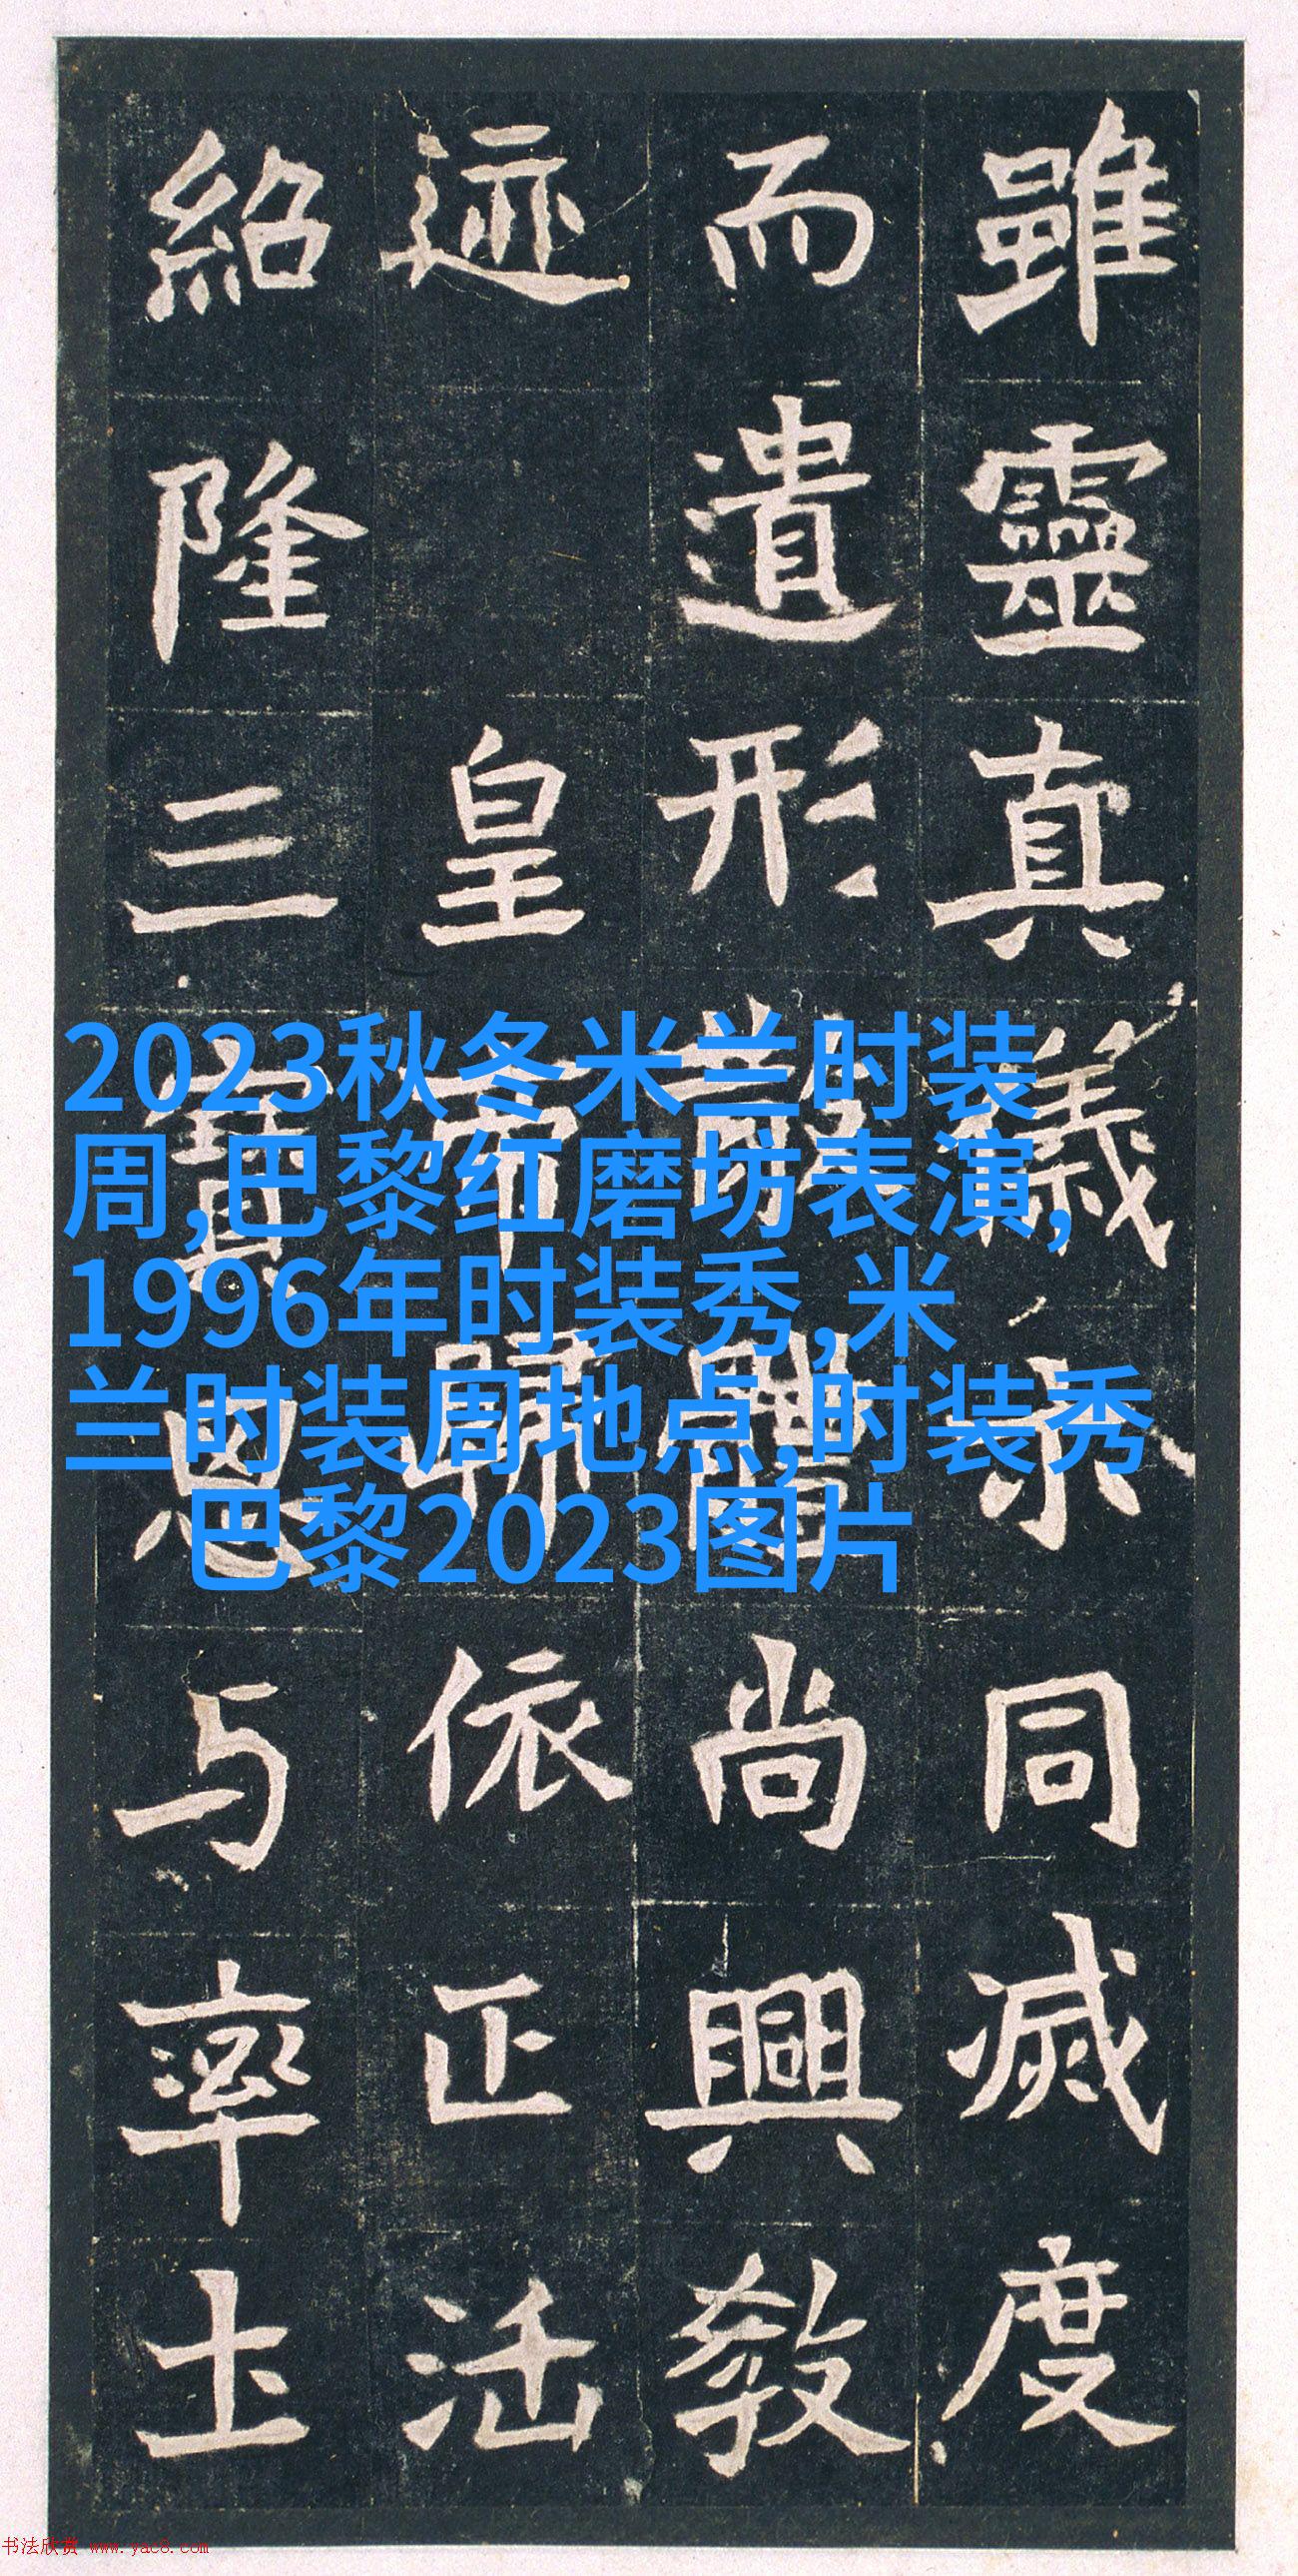 雖靈真儀示同滅度
而遺形尚興教
迹 皇帝歸依正法
紹隆三寶思与率土
2023秋冬米兰时装
周,巴黎红磨坊表演,
1996年时装秀,米
兰时装周地点,时装秀
巴黎2023图片
书法欣赏 www.yac8.com